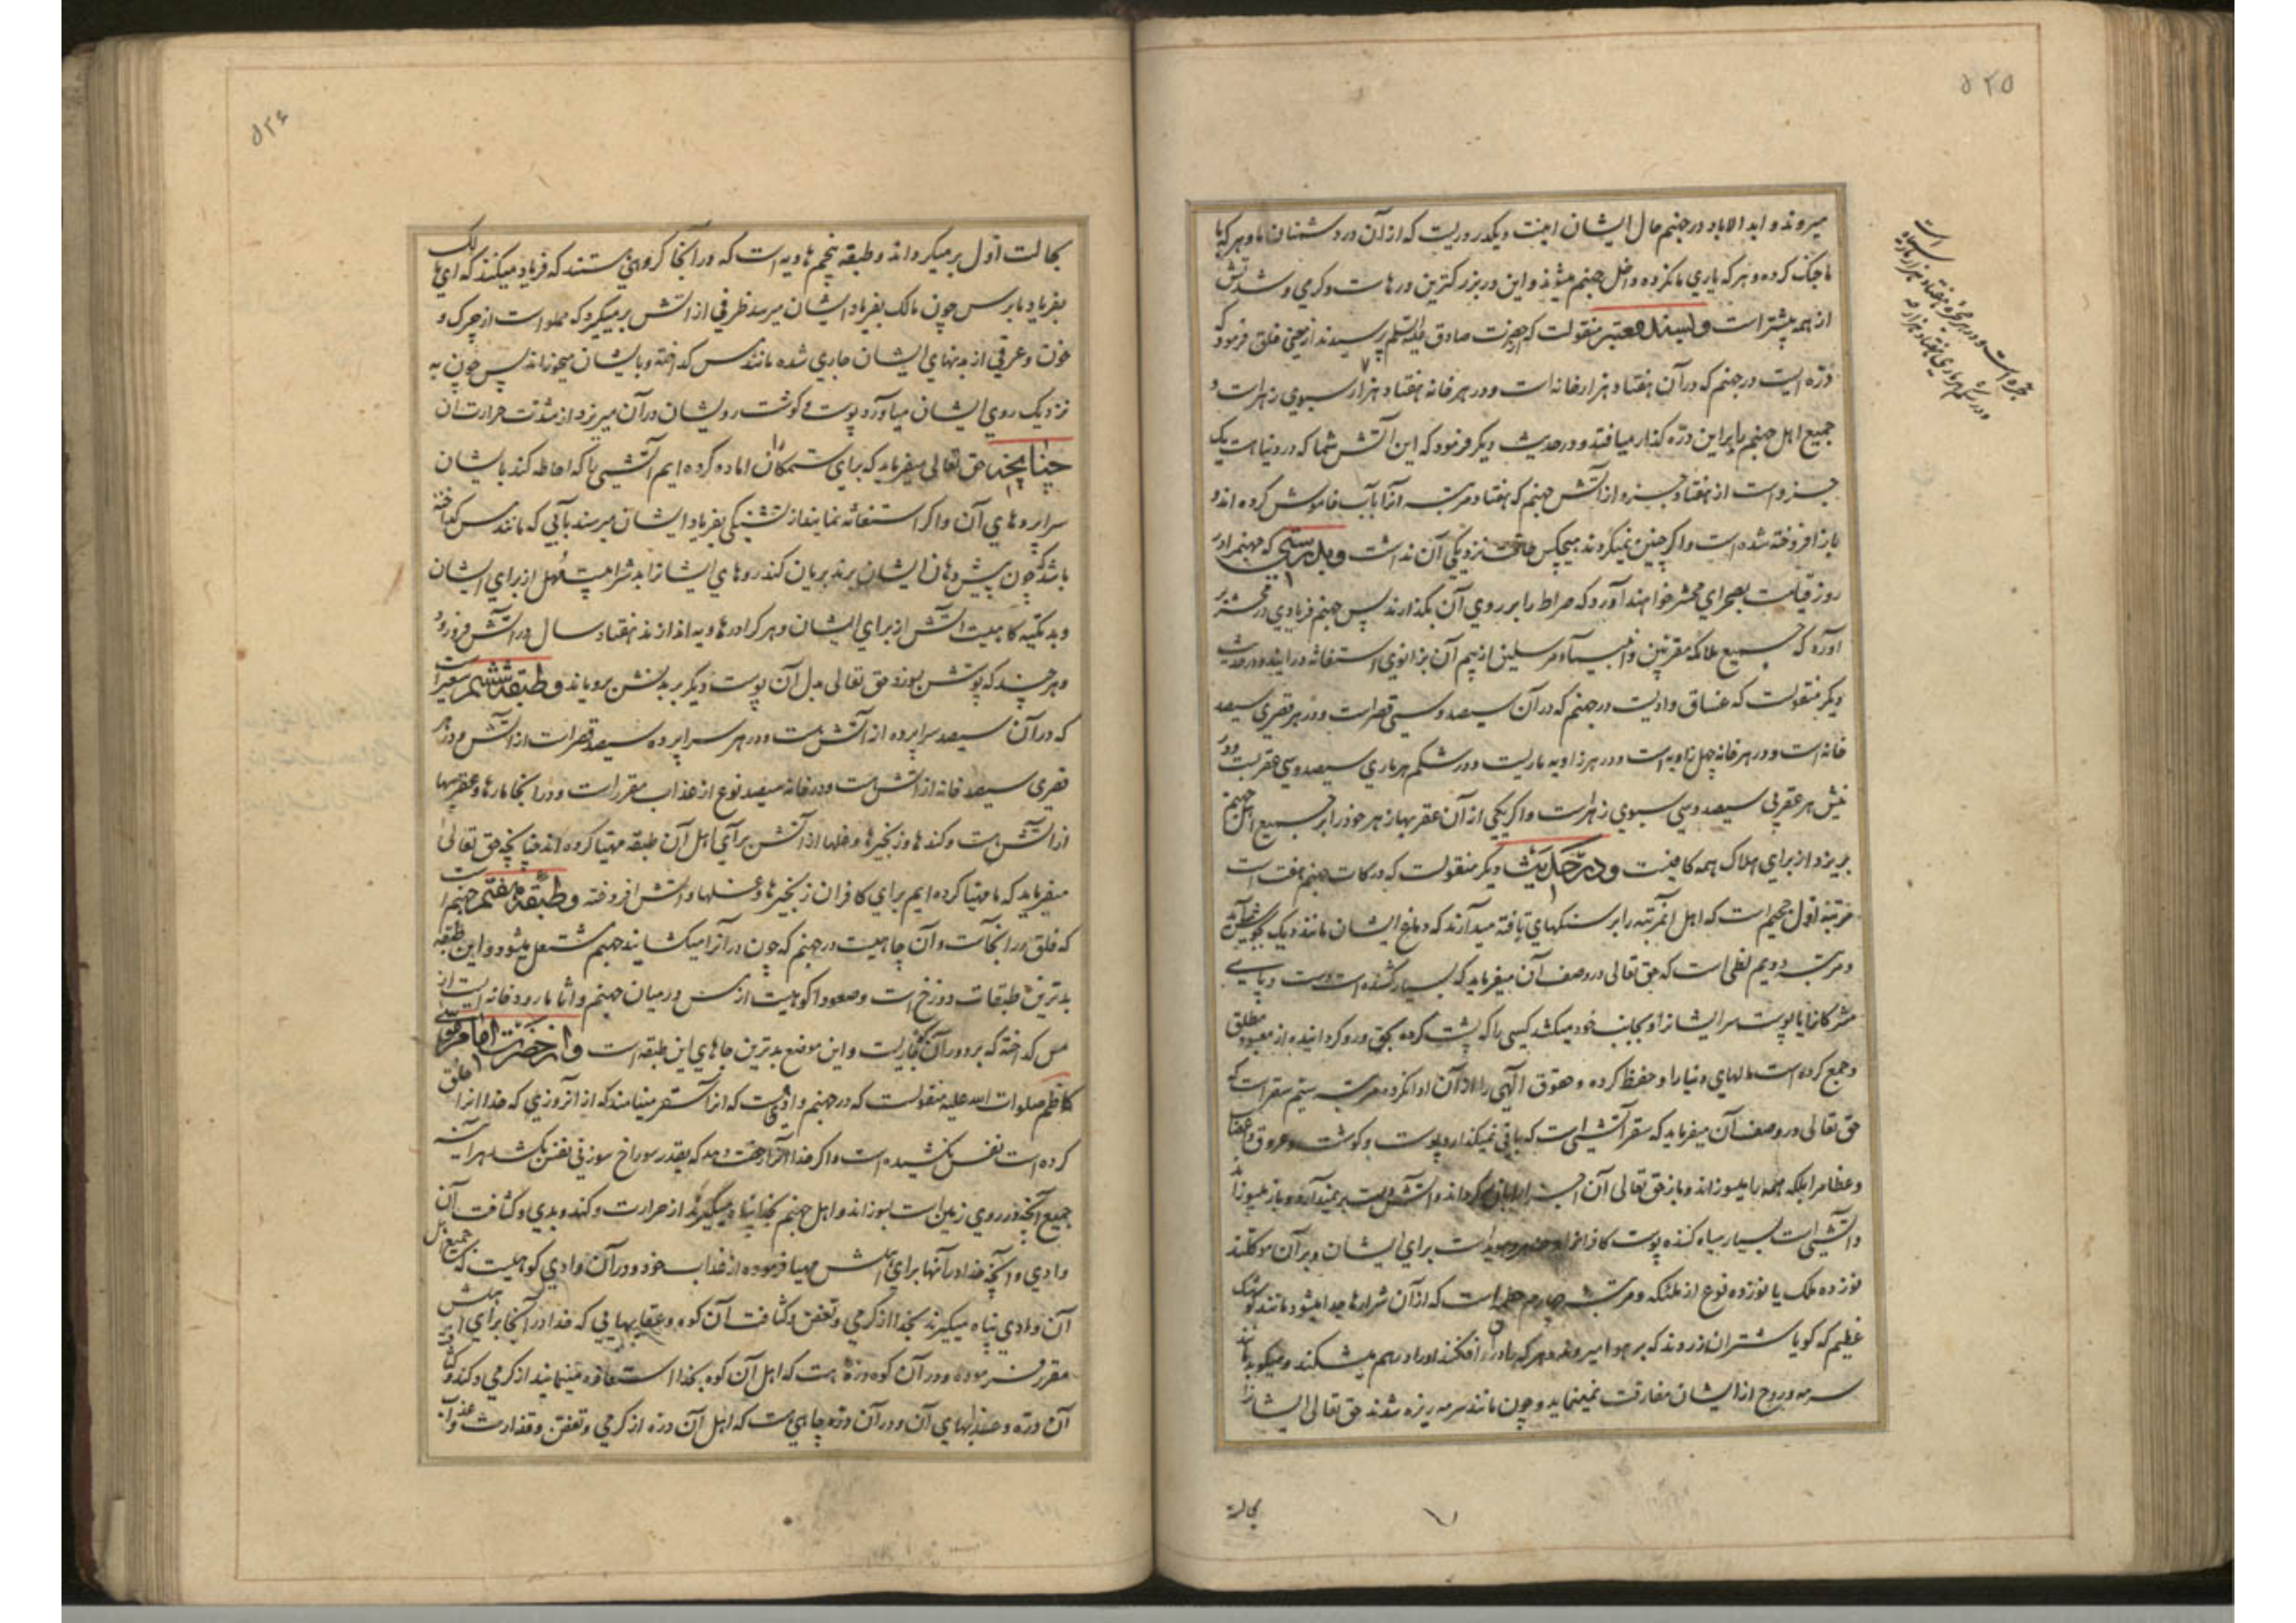 ۵۲۵
میروند و ابد الاباد در جهنم حال ایشان اینست و یکدر دریست که از آن در دشمنان ما و هر که با
ما جنک کرده و هر که یاري ما نکرده داخل جهنم میشوند و این در بزرکترین درهاست و کرمي و شدتش
از همه بیشتر است و بسند معتبر منقولست که از حضرت صادق علیه السلم پرسیدند از معني فلق فرمود که
درّه ایست در جهنم که در آن هفتاد هزار خانه است و در هر خانه هفتاد هزار
جمیع اهل جهنم را بر این درّه کذار میافتد و در حدیث دیکر فرمود که این آتش شما که در دنیا هست یک
جزو است از هفتاد جزو از آتش جهنم که هفتاد مرتبه آنرا بآب خاموش کرده اند و
باز افروخته شده است و اکر چنین نمیکردند هیچکس طاقت نزدیکي آن نداشت و بدرستي که جهنم را در
روز قیامت بصحراي محشر خواهند آورد که صراط را بر روي آن بکذارند پس جهنم فریادي در محشر بر
آورد که جمیع ملائکه مقربین و انبیاء مرسلین از بیم آن بزانوي استغاثه در آیند و در حدیث
دیکر منقولست که غساق وادیست در جهنم که در آن سیصد و سي قصر است و در هر قصري سیصد
خانه است و در هر خانه چهل زاویه است و در هر زاویه ماریست و در شکم هر ماري سیصد و سي عقربست و در
نیش هر عقربي سیصد و سي سبوي زهر است و اکر یکي از آن عقربها زهر خود را بر جمیع اهل جهنم
بریزد از براي هلاک همه کافیست و در حدیث دیکر منقولست که درکات جهنم هفت است
مرتبه اول جحیم است که اهل آنمرتبه را بر سنکهاي تافته میدارند که دماغ ایشان مانند دیک
و مرتبه دویم لظي است که حق تعالي در وصف آن میفرماید که بسیار کشنده است دست و پاي
مشرکانرا یا پوست سر ایشانرا و بجانب خود میکشد کسي را که پشت کرده بحق و رو کردانیده از معبود مطلق
و جمع کرده است مالهاي دنیا را و حفظ کرده و حقوق الهي را از آن ادا نکرده مرتبه سیم سقر است که
حق تعالي در وصف آن میفرماید که سقر آتشي است که باقي نمیکذارد پوست و کوشت و عروق و اعصاب
و عظام را بلکه همه را میسوزاند و باز حق تعالي آن اجزا را باز میکرداند و آتش دست بر نمیدارد و باز میسوزاند
و آتشي است بسیار سیاه کننده پوست کافران را است براي ایشان و بر آن موکلند
نوزده ملک یا نوزده نوع از ملئکه و مرتبه چهارم حطمه است که از آن شرارها جدا میشود مانند کوشک
عظیم که کویا شتران زردند که بر هوا میروند و هر که را در او افکنند او را در هم میشکند و میکوبد مانند
سرمه و روح از ایشان مفارقت نمینماید و چون مانند سرمه ریزه شدند حق تعالي ایشانرا
بحالت
۵۲۶
بحالت اول بر میکرداند و طبقه پنجم هاویه است که در آنجا کروهي هستند که فریاد میکنند که اي مالک
بفریاد ما برس چون مالک بفریاد ایشان میرسد ظرفي از آتش بر میکیرد که مملو است از چرک و
خون و عرقي که از بدنهاي ایشان جاري شده مانند مس کداخته و بایشان میخوراند پس چون به
نزدیک روي ایشان میآورد پوست و کوشت روي ایشان در آن میریزد از شدت حرارت آن
چنانچه حق تعالي میفرماید که براي ستمکاران اماده کرده ایم آتشي را که احاطه کند بایشان
سراپرده هاي آن و اکر استغاثه نمایند از تشنکي بفریاد ایشان میرسند بآبي که مانند مس کداخته
باشد که چون پیش دهان ایشان برند بریان کند روهاي ایشانرا بد شرابیست مُهل از براي ایشان
و بد تکیه کاهیست آتش از براي ایشان و هر که را در هاویه اندازند هفتاد سال در آتش فرو رود
و هر چند که پوستش بسوزد حق تعالي بدل آن پوست دیکر بر بدنش برویاند و طبقه ششم سعیر است
که در آن سیصد سراپرده از آتش هست و در هر سراپرده سیصد قصر است از آتش و در هر
قصري سیصد خانه از آتش هست و در هر خانه سیصد نوع از عذاب مقرر است و در آنجا مارها و عقربها
از آتش هست و کندها و زنجیرها و غلها از آتش براي اهل آن طبقه مهیا کرده اند چنانچه حق تعالي
میفرماید که ما مهیا کرده ایم براي کافران زنجیرها و غلها و آتش افروخته و طبقه هفتم جهنم است
که فلق در آنجاست و آن چاهیست در جهنم که چون در آنرا میکشایند جهنم مشتعل میشود و این طبقه
بدترین طبقات دوزخ است و صعودا کوهیست از مس در میان جهنم و اثاما رودخانه ایست از
مس کداخته که بر دور آن کوه جاریست و این موضع بدترین جاهاي این طبقه است و از حضرت امام موسي
کاظم صلوات الله علیه منقولست که در جهنم وادیي هست که آنرا سقر مینامند که از آنروزي که خدا آنرا خلق
کرده است نفس نکشیده است و اکر خدا آنرا رخصت دهد که بقدر سوراخ سوزني نفس بکشد هر آینه
جمیع آنچه در روي زمین است بسوزاند و اهل جهنم بخدا پناه میکیرند از حرارت و کند و بدي و کثافت آن
وادي و آنچه خدا در آنها براي اهلش مهیا فرموده از عذاب خود و در آن وادي کوهیست که جمیع اهل
آن وادي پناه میکیرند بخدا از کرمي و تعفن و کثافت آن کوه و عقابهایي که خدا در آنجا براي اهلش
مقرر فرموده و در آن کوه درّه هست که اهل آن کوه بخدا استعاذه مینمایند از کرمي و کند و کثافت
آن درّه و عذابهاي آن و در آن درّه چاهي هست که اهل آن درّه از کرمي و تعفن و قذارت و عذاب